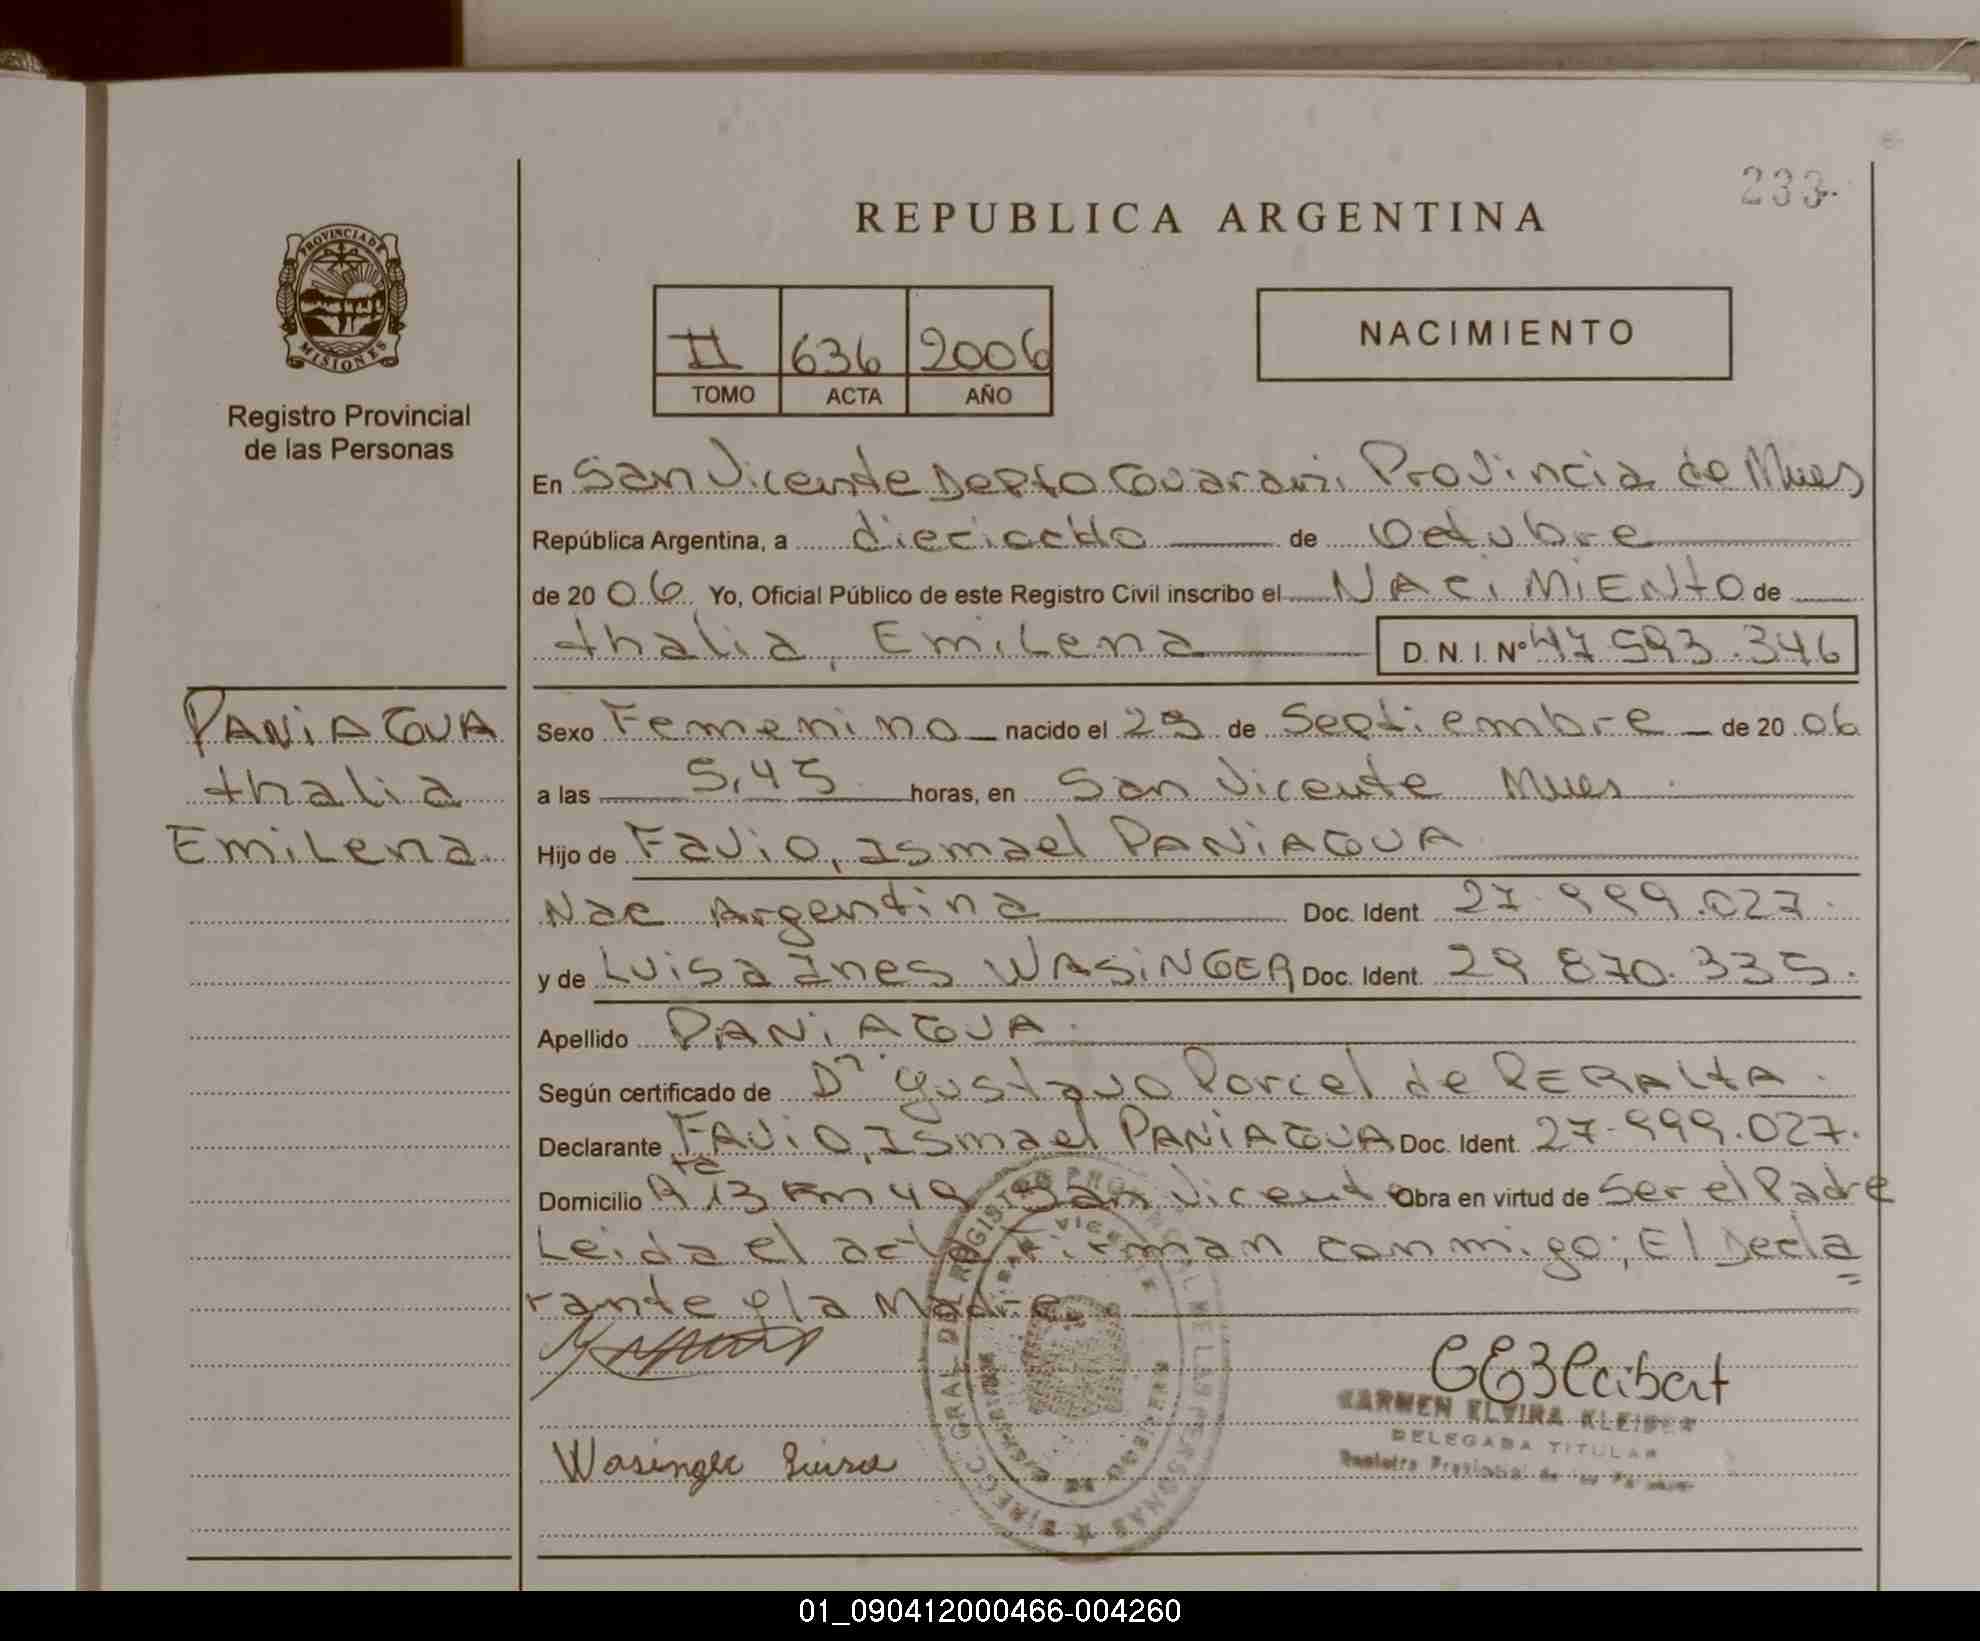 233
REPUBLICA ARGENTINA
PROVINCIA DE
MISIONES
Registro Provincial
de las Personas
II 636 2006
TOMO ACTA AÑO
NACIMIENTO
En San Vicente Depto Guarani Provincia de Mnes
República Argentina, a dieciocho de Octubre
de 20 06 Yo, Oficial Público de este Registro Civil inscribo el NACIMIENTO de
thalia, Emilena D. N. I. Nº 47 593.346
PANIAGUA
thalia
Emilena
Sexo Femenino nacido el 29 de Septiembre de 20 06
a las 5,45 horas, en San Vicente Mnes
Hijo de Favio, Ismael PANIAGUA
Nac Argentina Doc. Ident. 27.999.027.
y de Luisa Ines WASINGER Doc. Ident. 29 870.335.
Apellido PANIAGUA.
Según certificado de Dr Gustavo Porcel de PERALTA.
Declarante FAVIO, Ismael PANIAGUA Doc. Ident. 27.999.027.
Domicilio Rta 13 Km 49 San Vicente Obra en virtud de Ser el Padre
Leida el act Firman conmigo; El Decla
rante y la Madre
Wasinger Luisa
CARMEN ELVIRA KLEIBERT
DELEGADA TITULAR
Registro Provincial de las Personas
DIRECC. GRAL. DEL REGISTRO PROVINCIAL DE LAS PERSONAS
SAN VICENTE
01_090412000466-004260